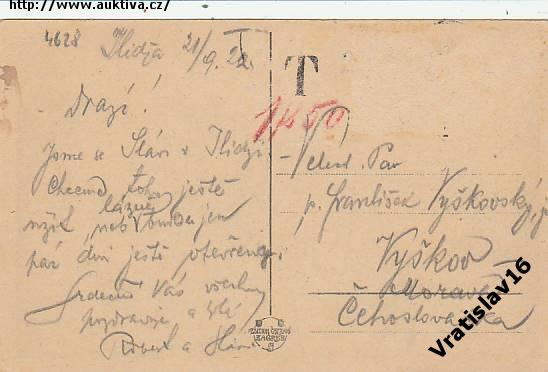 http://www.auktiva.cz/
4628
Ilidža 21/9. 22.
T
1K50
Drazí!
Jsme se Slávi v Ilidži
Chceme toho ještě
lázně
užít, neb tomu jen
pár dní ještě otevřeny
Srdečně Vás všechny
pozdravuje a líbá
Robert a Sláv
Velect. Pan
p. František Vyškovský,
Vyškov
Morava
Čehoslovačka
ZAGREB
Vratislav16